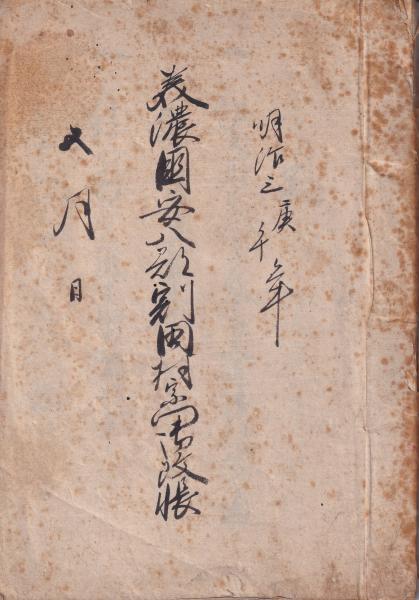 明治三庚午年
美濃國安八郡割田村宗門御改帳
五月日